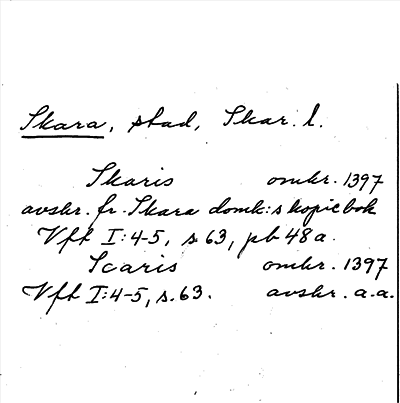 Skara, stad, Skar. l.
Skaris omkr. 1397
avskr. fr. Skara domk:s kopiebok
Vft I:4-5, s 63, pb 48a.
Scaris omkr. 1397
Vft I:4-5, s. 63. avskr. a.a.